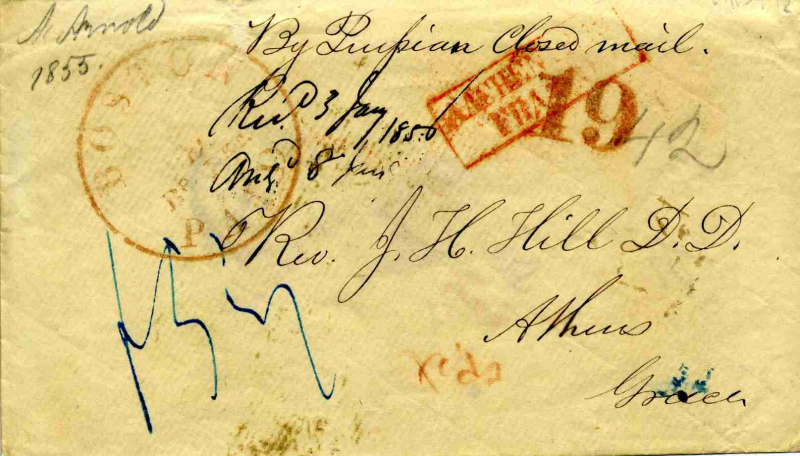 A. Arnold
1855.
By Prussian Closed mail.
BOSTON
PAID
Recd. 3 Jany 1856
Ansd. 8 Jan
FRA
19
42
Rev. J. H. Hill D. D.
Athens
Greece